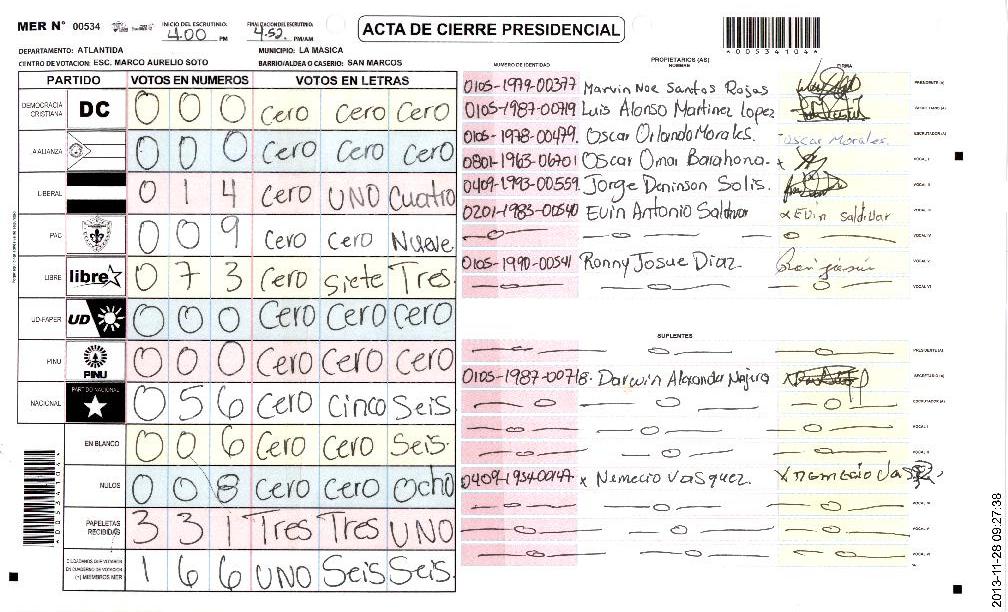 MER N° 00534
INICIO DEL ESCRUTINIO: 4:00 PM
FINALIZACION DEL ESCRUTINIO: 4:52 PM/AM
ACTA DE CIERRE PRESIDENCIAL
*00534104*
DEPARTAMENTO: ATLANTIDA
MUNICIPIO: LA MASICA
CENTRO DE VOTACION: ESC. MARCO AURELIO SOTO
BARRIO/ALDEA O CASERIO: SAN MARCOS
PARTIDO VOTOS EN NUMEROS VOTOS EN LETRAS
DEMOCRACIA CRISTIANA DC 0 0 0 Cero Cero Cero
0 0 0 Cero Cero Cero
LIBERAL 0 1 4 Cero UNO Cuatro
PAC 0 0 9 Cero Cero Nueve
LIBRE libre 0 7 3 Cero Siete Tres
UD-FAPER UD 0 0 0 Cero Cero Cero
PINU PINU 0 0 0 Cero Cero Cero
NACIONAL PARTIDO NACIONAL 0 5 6 Cero Cinco Seis
EN BLANCO 0 0 6 Cero Cero Seis
NULOS 0 0 8 Cero Cero Ocho
PAPELETAS RECIBIDAS 3 3 1 Tres Tres UNO
CIUDADANOS QUE VOTARON EN CUADERNO DE VOTACION (+) MIEMBROS MER 1 6 6 UNO Seis Seis
PROPIETARIOS (AS)
NUMERO DE IDENTIDAD NOMBRE FIRMA
0105-1979-00377 Marvin Noe Santos Rojas PRESIDENTE (A)
0105-1987-00719 Luis Alonso Martinez Lopez SECRETARIO (A)
0105-1978-00479. Oscar Orlando Morales. Oscar Morales. ESCRUTADOR (A)
0801-1963-06701 Oscar Omar Barahona. x VOCAL I
0409-1993-00559 Jorge Deninson Solis. VOCAL II
0201-1983-00540 Evin Antonio Saldivar x Evin saldivar VOCAL III
VOCAL IV
0105-1990-00541 Ronny Josue Diaz. VOCAL V
VOCAL VI
SUPLENTES
PRESIDENTE (A)
0105-1987-00718. Darwin Alexander Najera SECRETARIO (A)
ESCRUTADOR (A)
VOCAL I
VOCAL II
0409-1954-00147. x Nemecio Vasquez. x nemecio VOCAL III
VOCAL IV
VOCAL V
VOCAL VI
*00534104*
2013-11-28 09:27:38